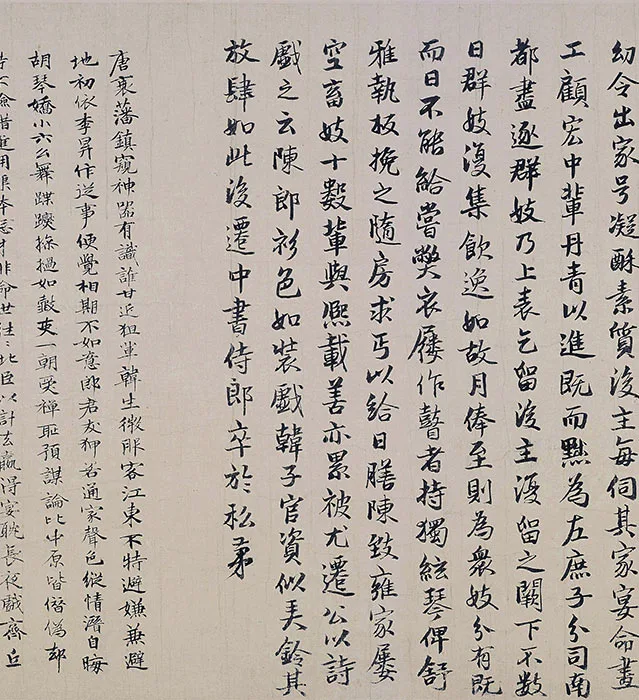 幼令出家号凝酥素質後主每伺其家宴命畫
工顧宏中輩丹青以進既而黜為左庶子分司南
都盡逐群妓乃上表乞留後主優留之闕下不數
日群妓復集飲逸如故月俸至則為衆妓分有既
而日不能給嘗弊衣屨作瞽者持獨絃琴俾舒
雅執板挽之隨房求丐以給日膳陳致雍家屢
空畜妓十數輩與熈載善亦累被尤遷公以詩
戲之云陳郎衫色如裝戲韓子官資似美鈴其
放肆如此後遷中書侍郎卒於私苐
唐衰藩鎮窺神器有識誰甘近狙輩韓生微服客江東不特避嫌兼避
地初依李昪作逆事便覺相期不如意郎君友狎若通家聲色縱情潛自晦
胡琴嬌小六幺舞蹀躞摻撾如鼓吏一朝受禪恥預謀論比中原皆僭偽却
非命世北臣以計去贏得宴躭長夜戲齊丘